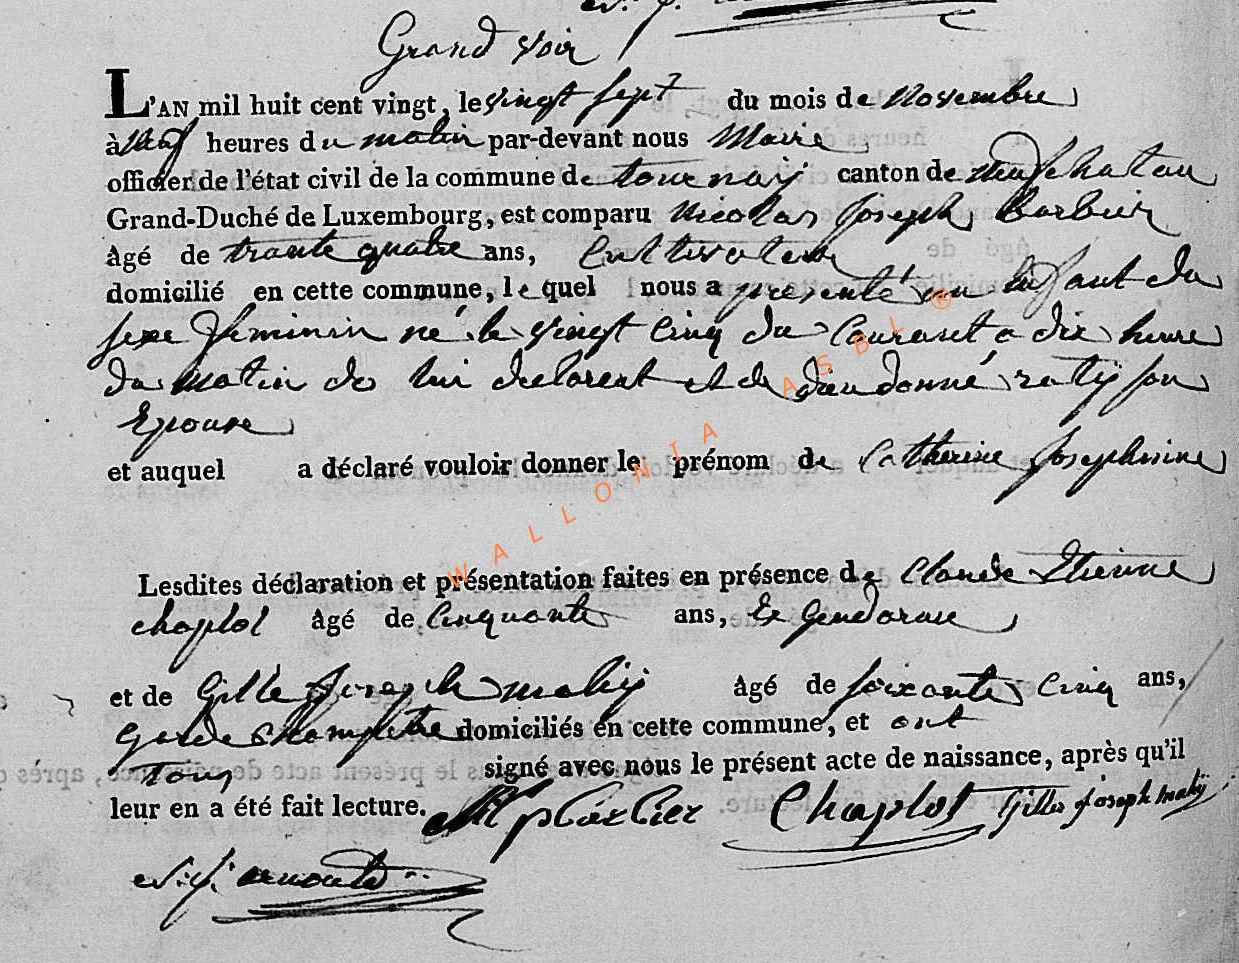 Grand voir
L'AN mil huit cent vingt, le vingt sept du mois de Novembre
à Neuf heures du matin par-devant nous Maire
officier de l'état civil de la commune de tournay canton de neufchatau
Grand-Duché de Luxembourg, est comparu Nicolas Joseph Barbier
âgé de trante quatre ans, Cultivateur
domicilié en cette commune, le quel nous a presenté un Enfant du
sexe feminin né le vingt Cinq du Courant a dix heure
du Matin de lui declarent et de dieudonné ratÿ son
Epouse
et auquel a déclaré vouloir donner le prénom de Catherine Josephinne
Lesdites déclaration et présentation faites en présence de Claude Etienne
chaplot âgé de Cinquante ans, Ex Gendarme
et de Gille Joseph mahÿ âgé de soixante Cinq ans,
Garde Champetre domiciliés en cette commune, et ont
Tous signé avec nous le présent acte de naissance, après qu'il
leur en a été fait lecture. Barbier Chaplot Gilles joseph Mahÿ
N. J. arnould
WALLONIA ASBL ®